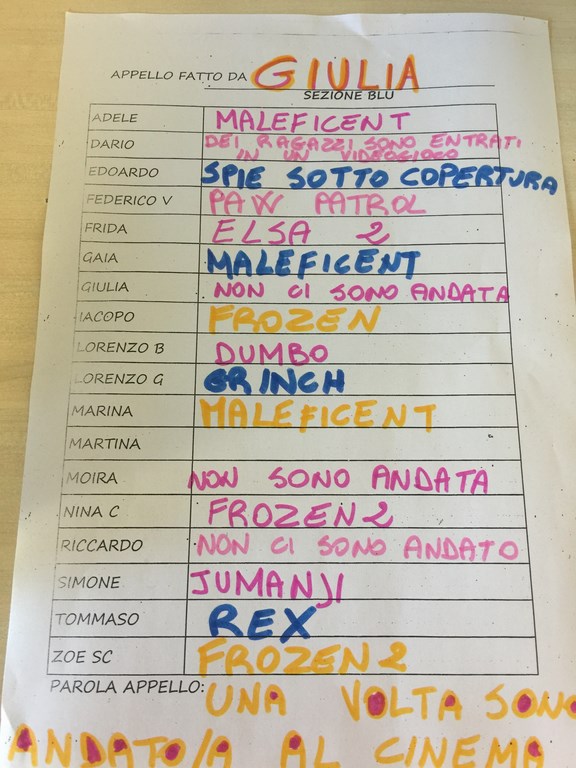 APPELLO FATTO DA GIULIA
SEZIONE BLU
ADELE MALEFICENT
DARIO DEI RAGAZZI SONO ENTRATI
IN UN VIDEOGIOCO
EDOARDO SPIE SOTTO COPERTURA
FEDERICO V PAW PATROL
FRIDA ELSA 2
GAIA MALEFICENT
GIULIA NON CI SONO ANDATA
IACOPO FROZEN
LORENZO B DUMBO
LORENZO G GRINCH
MARINA MALEFICENT
MARTINA
MOIRA NON SONO ANDATA
NINA C FROZEN 2
RICCARDO NON CI SONO ANDATO
SIMONE JUMANJI
TOMMASO REX
ZOE SC FROZEN 2
PAROLA APPELLO: UNA VOLTA SONO
ANDATO/A AL CINEMA